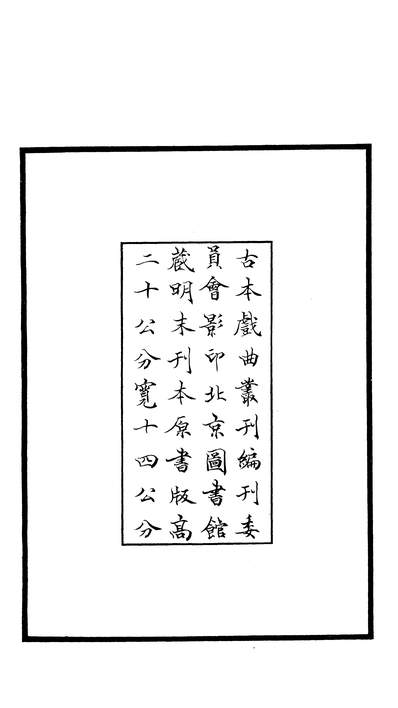 古本戲曲叢刊編刊委
員會影印北京圖書館
藏明末刊本原書版高
二十公分寬十四公分